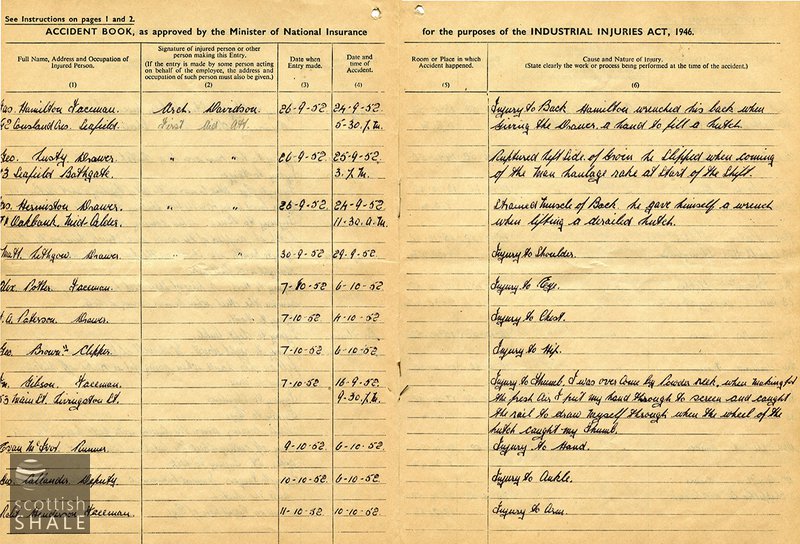 See Instructions on pages 1 and 2.
ACCIDENT BOOK, as approved by the Minister of National Insurance for the purposes of the INDUSTRIAL INJURIES ACT, 1946.
Full Name, Address and Occupation of Injured Person.
(1)
Signature of injured person or other person making this Entry.
(If the entry is made by some person acting on behalf of the employee, the address and occupation of such person must also be given.)
(2)
Date when Entry made.
(3)
Date and time of Accident.
(4)
Room or Place in which Accident happened.
(5)
Cause and Nature of Injury.
(State clearly the work or process being performed at the time of the accident.)
(6)
Hamilton Faceman. Arch. Davidson. 26-9-52 24-9-52 Injury to Back Hamilton wrenched his back when
Cousland Cres. Seafield. First Aid Att. 5-30. P.M. giving the Drawer a hand to fill a hutch.
Geo. Lusty Drawer " " 26-9-52 25-9-52 Ruptured left side of Groin he slipped when coming
Seafield Bathgate. 3. P.M. of the man haulage rake at Start of the Shift.
Hermiston Drawer. " " 26-9-52 24-9-52 Strained Muscle of Back he gave himself a wrench
Oakbank Mid-Calder. 11-30. A.M. when lifting a derailed hutch.
Matt. Lithgow Drawer " " 30-9-52 29-9-52. Injury to Shoulder.
Alex. Potter Faceman. 7-10-52 6-10-52 Injury to Eye.
A. Paterson Drawer. 7-10-52 4-10-52 Injury to Chest.
Geo. Brown Clipper. 7-10-52 6-10-52 Injury to Hip.
Gibson. Faceman. 7-10-52 16-9-52 Injury to Thumb. I was over come by Powder reek, when making for
53 Main St. Livingston St. 9-30. P.M. the fresh Air I put my hand through to screen and caught
the rail to draw myself through when the wheel of the
hutch caught my Thumb.
Evan Runner 9-10-52 6-10-52 Injury to Hand.
Callander Deputy 10-10-52 6-10-52 Injury to Ankle.
Robt. Henderson Faceman 11-10-52 10-10-52 Injury to Arm.
scottish
SHALE